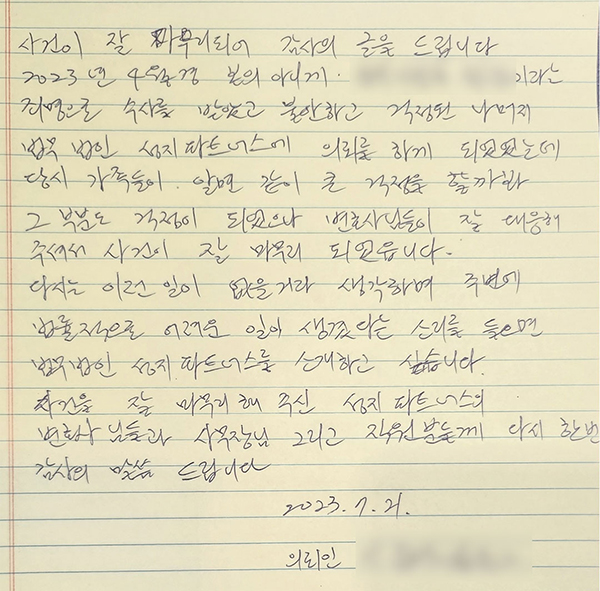 사건이 잘 마무리되어 감사의 글을 드립니다
2023년 4월경 본의 아니게 이라는
죄명으로 수사를 받았고 불안하고 걱정된 나머지
법무법인 성지파트너스에 의뢰를 하게 되었었는데
당시 가족들이 알면 같이 큰 걱정을 할까봐
그 부분도 걱정이 되었으나 변호사님들이 잘 대응해
주셔서 사건이 잘 마무리 되었습니다.
다시는 이런 일이 없을거라 생각하며 주변에
법률적으로 어려운 일이 생겼다는 소리를 들으면
법무법인 성지파트너스를 소개하고 싶습니다.
사건을 잘 마무리해 주신 성지파트너스의
변호사님들과 사무장님 그리고 직원분들께 다시 한번
감사의 말씀 드립니다
2023. 7. 21.
의뢰인